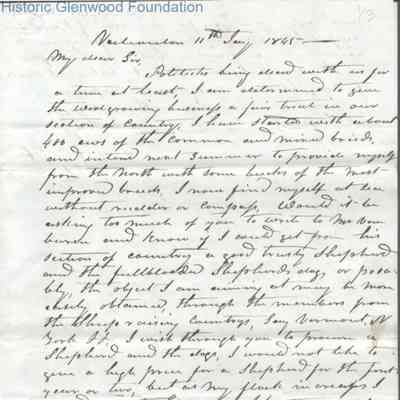 Historic Glenwood Foundation
11th Jany 1845
My dear Sir,
Politicks being dead with us for
a time at least, I am determined to give
the woolgrowing business a fair trial in our
section of Country, I have started with about
400 ews of the Common and mixed breeds,
and intend next Summer to provide myself
from the North with some bucks of the most
improved breeds, I now find myself at sea
without rudder or Compass, Would it be
asking too much of you to write to Mr Van
buren and know if I could get from his
section of country a good trusty Shepherd
and the fullblooded Shepherds dog, or possi-
bly, the object I am aiming at may be more
easily obtained, through the members from
the Sheep raising Countrys, Say Vermont, N
York &c. I wish through you to procure a
Shepherd and the dogs, I would not like to
give a high price for a Shepherd for the first
year or two, but as my flock increases I